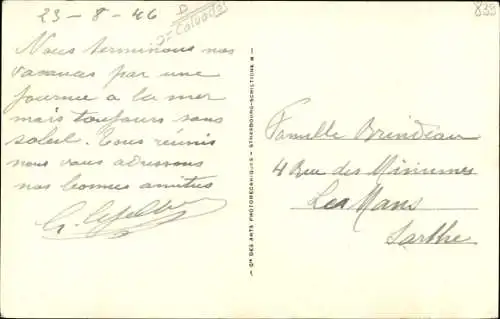 23-8-46
D
Calvados
839
Nous terminons nos
vacances par une
journée a la mer
mais toujours sans
soleil. Tous réunis
nous vous adressons
nos bonnes amitiés
G. Lefebvre
Cie DES ARTS PHOTOMECANIQUES - STRASBOURG-SCHILTIGHEIM
Famille Brindeau
4 Rue des Minimes
Le Mans
Sarthe